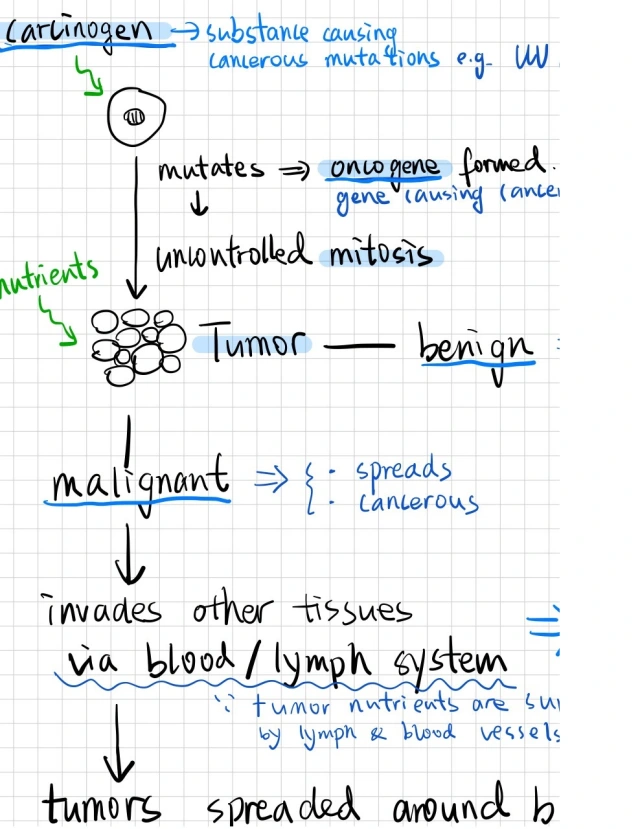 carcinogen → substance causing
cancerous mutations e.g. UV
mutates ⇒ oncogene formed.
↓ gene causing
uncontrolled mitosis
nutrients
Tumor — benign
malignant ⇒ { · spreads
· cancerous
invades other tissues
via blood / lymph system
∵ tumor nutrients are
by lymph & blood vessels
tumors spreaded around